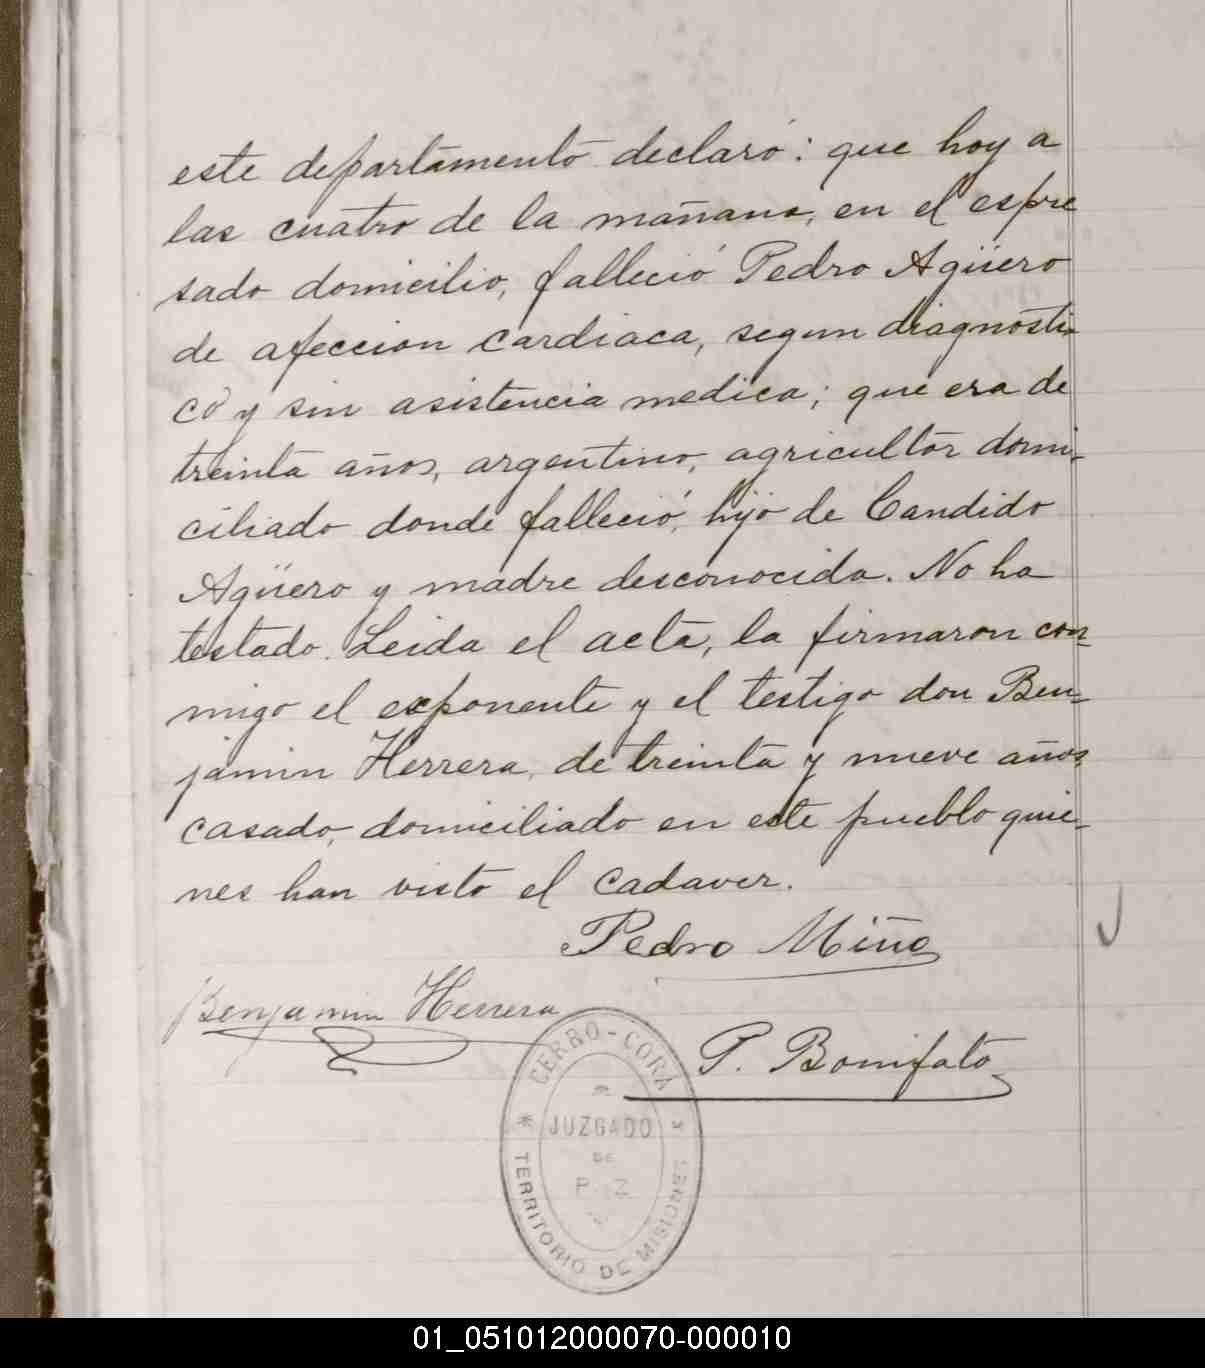 este departamento declaró: que hoy a
las cuatro de la mañana, en el espre
sado domicilio, falleció Pedro Agüero
de afeccion cardiaca, segun diagnosti-
co y sin asistencia medica; que era de
treinta años, argentino, agricultor domi-
ciliado donde falleció, hijo de Candido
Agüero y madre desconocida. No ha
testado. Leida el acta, la firmaron con-
migo el exponente y el testigo don Ben-
jamin Herrera, de treinta y nueve años,
casado, domiciliado en este pueblo quie-
nes han visto el cadaver.
Pedro Miño
Benjamin Herrera
P. Bonifato
CERRO-CORÁ
JUZGADO
DE
P Z
TERRITORIO DE MISIONES
01_051012000070-000010